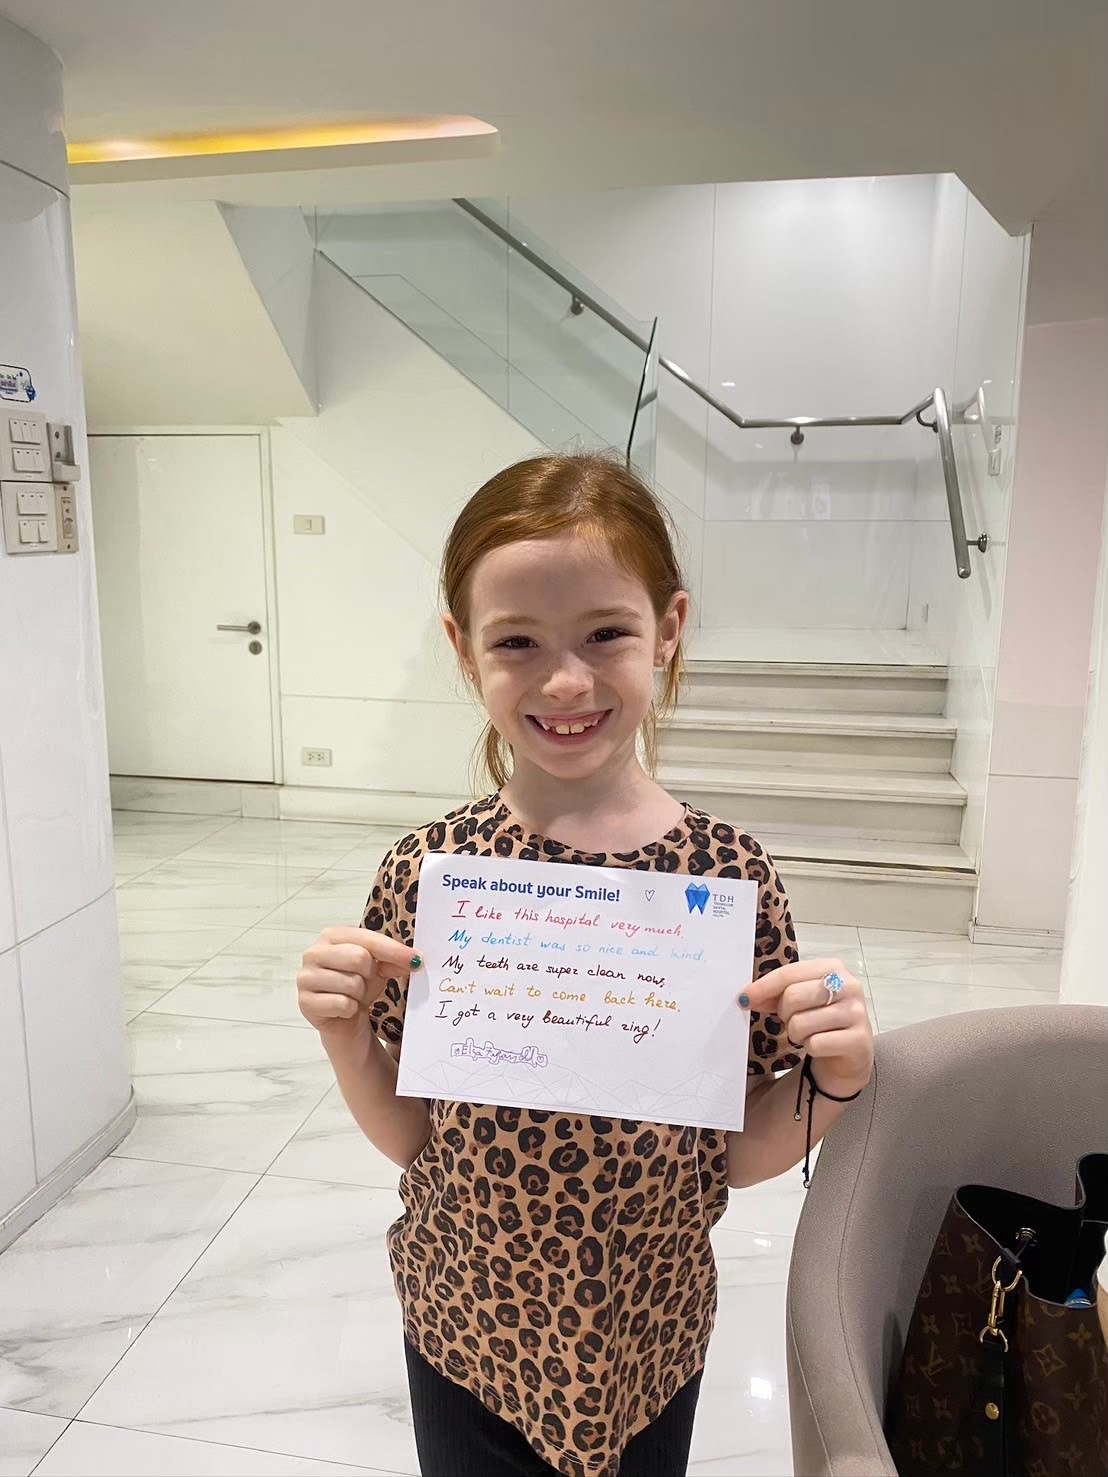 Speak about your Smile!
TDH
DENTAL
HOSPITAL
I like this hospital very much.
My dentist was so nice and kind.
My teeth are super clean now,
Can't wait to come back here.
I got a very beautiful ring!